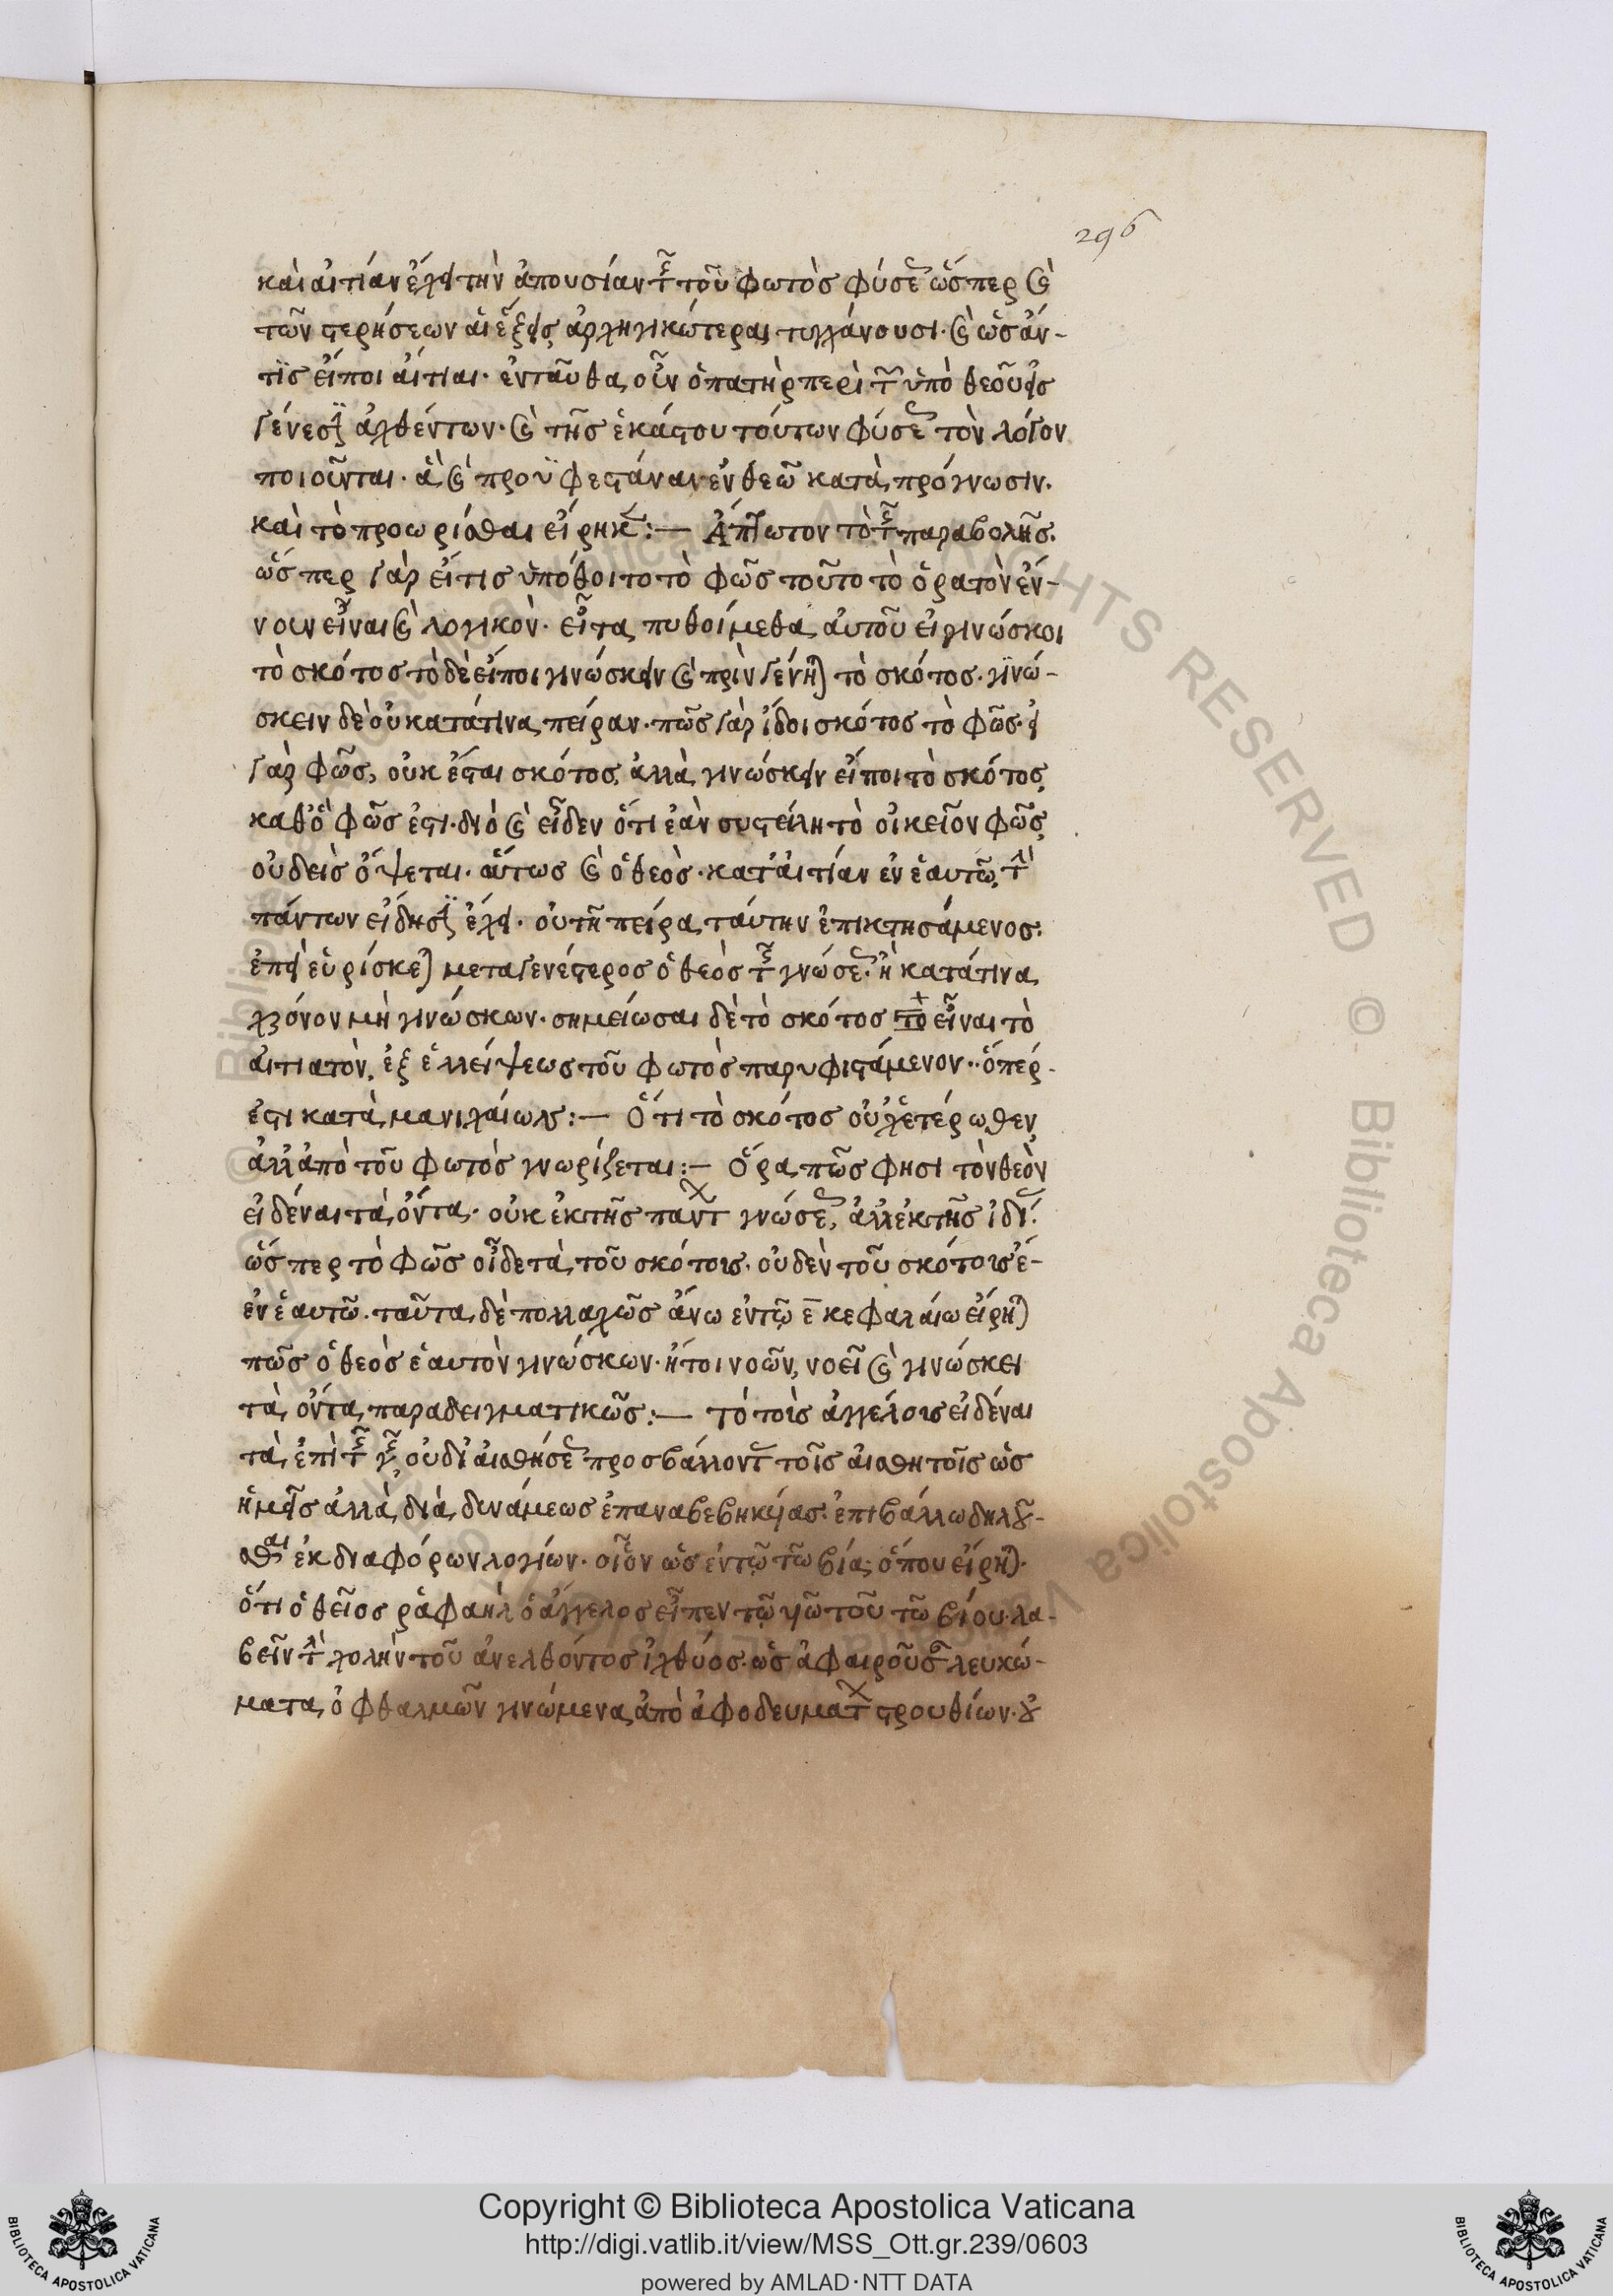 296
καὶ αἰτίαν ἔχει τὴν ἀπουσίαν τῆς τοῦ φωτὸς φύσεως ὥσπερ καὶ
τῶν στερήσεων αἱ ἕξεις ἀρχηγικώτεραι τυγχάνουσι· καὶ ὡς ἄν-
τις εἴποι αἴτιαι· ἐνταῦθα οὖν ὁ πατὴρ περὶ τῶν ὑπὸ θεοῦ εἰς
γένεσιν ἀχθέντων· καὶ τῆς ἑκάστου τούτων φύσεως τὸν λόγον
ποιοῦνται· ἃ καὶ προϋφεστάναι ἐν θεῶ κατὰ πρόγνωσιν·
καὶ τὸ προωρίσθαι εἴρηκεν:— Ἄπτωτον τὸ τῆς παραβολῆς·
ὥσπερ γὰρ εἴ τις ὑπόθοιτο τὸ φῶς τοῦτο τὸ ὁρατὸν ἔν-
νουν εἶναι καὶ λογικὸν· εἶτα πυθοίμεθα αὐτοῦ εἰ γινώσκοι
τὸ σκότος τὸ δὲ εἴποι γινώσκειν καὶ πρὶν γένηται τὸ σκότος· γινώ-
σκειν δὲ οὐ κατά τινα πείραν· πῶς γὰρ ἴδοι σκότος τὸ φῶς· εἰ
γὰρ φῶς, οὐκ ἔσται σκότος, ἀλλὰ γινώσκειν εἴποι τὸ σκότος,
καθὸ φῶς ἐστι· διὸ καὶ εἶδεν ὅτι ἐὰν συστείλη τὸ οἰκεῖον φῶς,
οὐδεὶς ὄψεται· οὕτως καὶ ὁ θεὸς· κατ' αἰτίαν ἐν ἑαυτῶ, τὴν
πάντων εἴδησιν ἔχει· οὐ τῆ πείρα ταύτην ἐπικτησάμενος·
ἐπεὶ εὑρίσκεται μεταγενέστερος ὁ θεὸς τῆς γνώσεως· ἢ κατά τινα
χρόνον μὴ γινώσκων· σημείωσαι δὲ τὸ σκότος τὸ εἶναι τὸ
αἰτιατὸν, ἐξ ἐλλείψεως τοῦ φωτὸς παρυφιστάμενον· ὅπέρ
ἐστι κατὰ μανιχαίων:— Ὅτι τὸ σκότος οὐχ ἑτέρωθεν
ἀλλ' ἀπὸ τοῦ φωτὸς γνωρίζεται:— Ὅρα πῶς φησι τὸν θεὸν
εἰδέναι τὰ ὄντα· οὐκ ἐκ τῆς παντων γνώσεως, ἀλλ' ἐκ τῆς ἰδίας·
ὥσπερ τὸ φῶς οἶδε τὰ τοῦ σκότους· οὐδὲν τοῦ σκότους ἔ-
ἐν ἑαυτῶ· ταῦτα δὲ πολλαχῶς ἄνω ἐν τῶ ε κεφαλαίω εἴρηται
πῶς ὁ θεὸς ἑαυτὸν γινώσκων· ἤτοι νοῶν, νοεῖ καὶ γινώσκει
τὰ ὄντα παραδειγματικῶς:— Τὸ τοὺς ἀγγέλους εἰδέναι
τὰ ἐπὶ τῆς γῆς οὐ δι' αἰσθήσεως προσβάλλοντας τοῖς αἰσθητοῖς ὡς
ἡμεῖς ἀλλὰ διὰ δυνάμεως ἐπαναβεβηκυίας· ἐπιβάλλω δηλοῦ-
σθαι ἐκ διαφόρων λογίων· οἷον ὡς ἐν τῶ τωβία· ὅπου εἴρηται·
ὅτι ὁ θεῖος ῥαφαὴλ ὁ ἄγγελος εἶπεν τῶ υἱῶ τοῦ τωβίου· λα-
βεῖν τὴν χολὴν τοῦ ἀνελθόντος ἰχθύος· ὡς ἀφαιροῦσαν λευκώ-
ματα ὀφθαλμῶν γινώμενα ἀπὸ ἀφοδευμάτων στρουθίων· οὐ
Copyright © Biblioteca Apostolica Vaticana
http://digi.vatlib.it/view/MSS_Ott.gr.239/0603
powered by AMLAD·NTT DATA
BIBLIOTECA APOSTOLICA VATICANA
BIBLIOTECA APOSTOLICA VATICANA